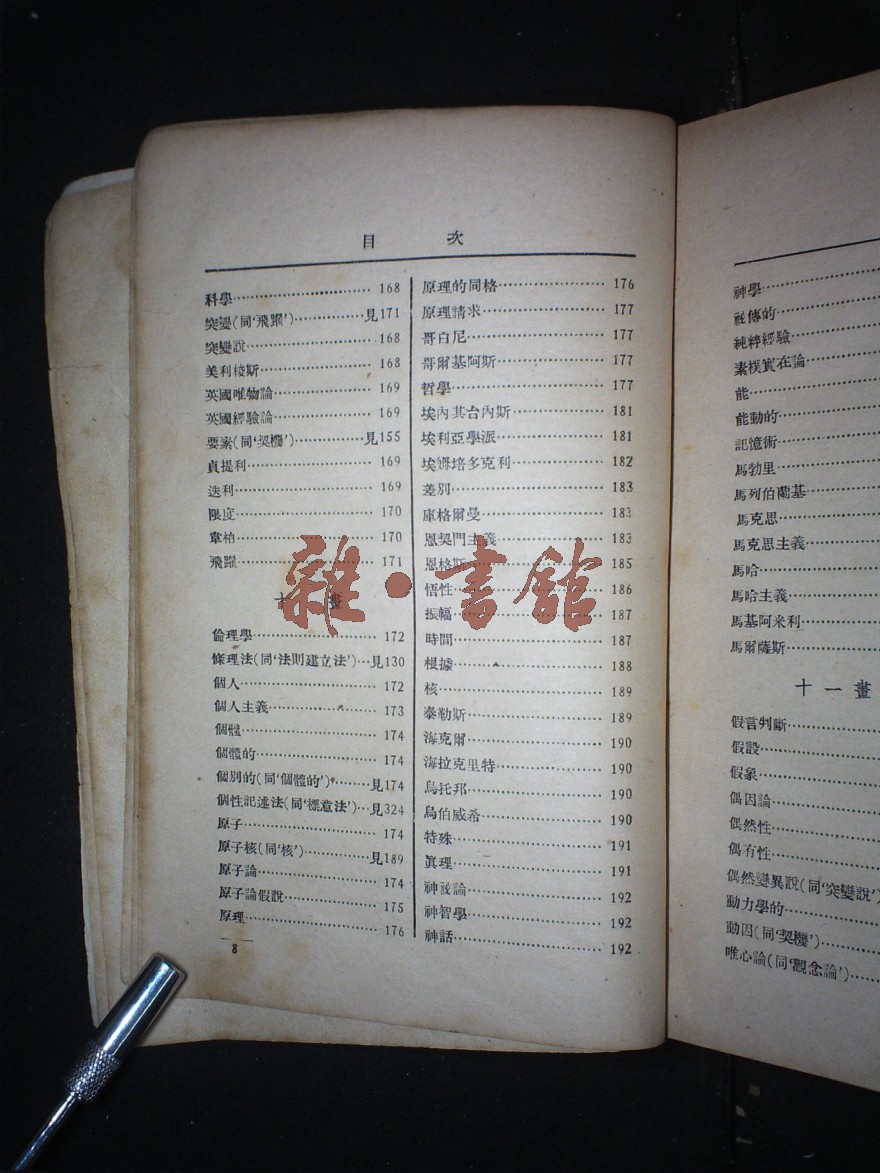 目 次
科學 168
突變(同‘飛躍’) 見171
突變說 168
美利梭斯 168
英國唯物論 169
英國經驗論 169
要素(同‘契機’) 見155
貞提利 169
迭利 169
限度 170
韋柏 170
飛躍 171
十 畫
倫理學 172
條理法(同‘法則建立法’) 見130
個人 172
個人主義 173
個體 174
個體的 174
個別的(同‘個體的’) 見174
個性記述法(同‘標意法’) 見324
原子 174
原子核(同‘核’) 見189
原子論 174
原子論假說 175
原理 176
8
原理的同格 176
原理請求 177
哥白尼 177
哥爾基阿斯 177
哲學 177
埃內其台內斯 181
埃利亞學派 181
埃姆培多克利 182
差別 183
庫格爾曼 183
恩契門主義 183
恩格斯 185
悟性 186
振幅 187
時間 187
根據 188
核 189
泰勒斯 189
海克爾 190
海拉克里特 190
烏托邦 190
烏伯威希 190
特殊 191
眞理 191
神祕論 192
神智學 192
神話 192
神學
祕傳的
純粹經驗
素樸實在論
能
能動的
記憶術
馬勃里
馬列伯蘭基
馬克思
馬克思主義
馬哈
馬哈主義
馬基阿米利
馬爾薩斯
十一畫
假言判斷
假設
假象
偶因論
偶然性
偶有性
偶然變異說(同‘突變說’)
動力學的
動因(同‘契機’)
唯心論(同‘觀念論’)
雜·書館